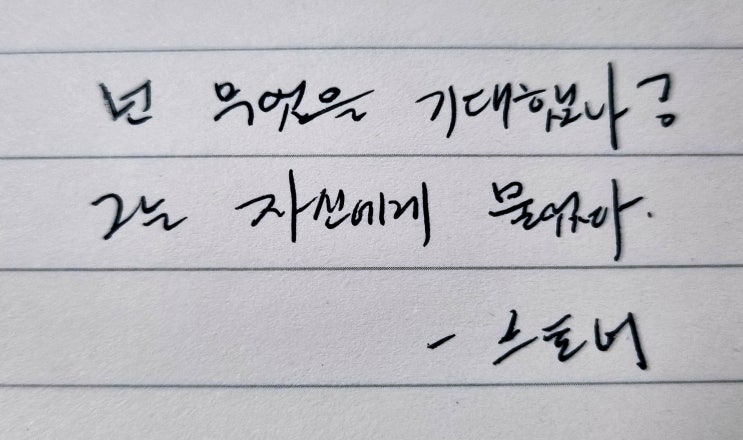 넌 무엇을 기대했나?
그는 자신에게 물었다.
- 스토너